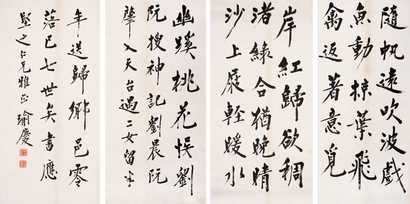 隨帆遠吹波戲
魚動掠葉飛
禽返著意覓
岸紅歸欲稠
渚綠合猶晚晴
沙上屐軽暖水
幽蹊桃花悞劉
阮搜神記劉晨阮
肇入天台過二女留半
年送歸鄉邑零
落已七世矣書應
堅之仁兄雅正 瑜慶